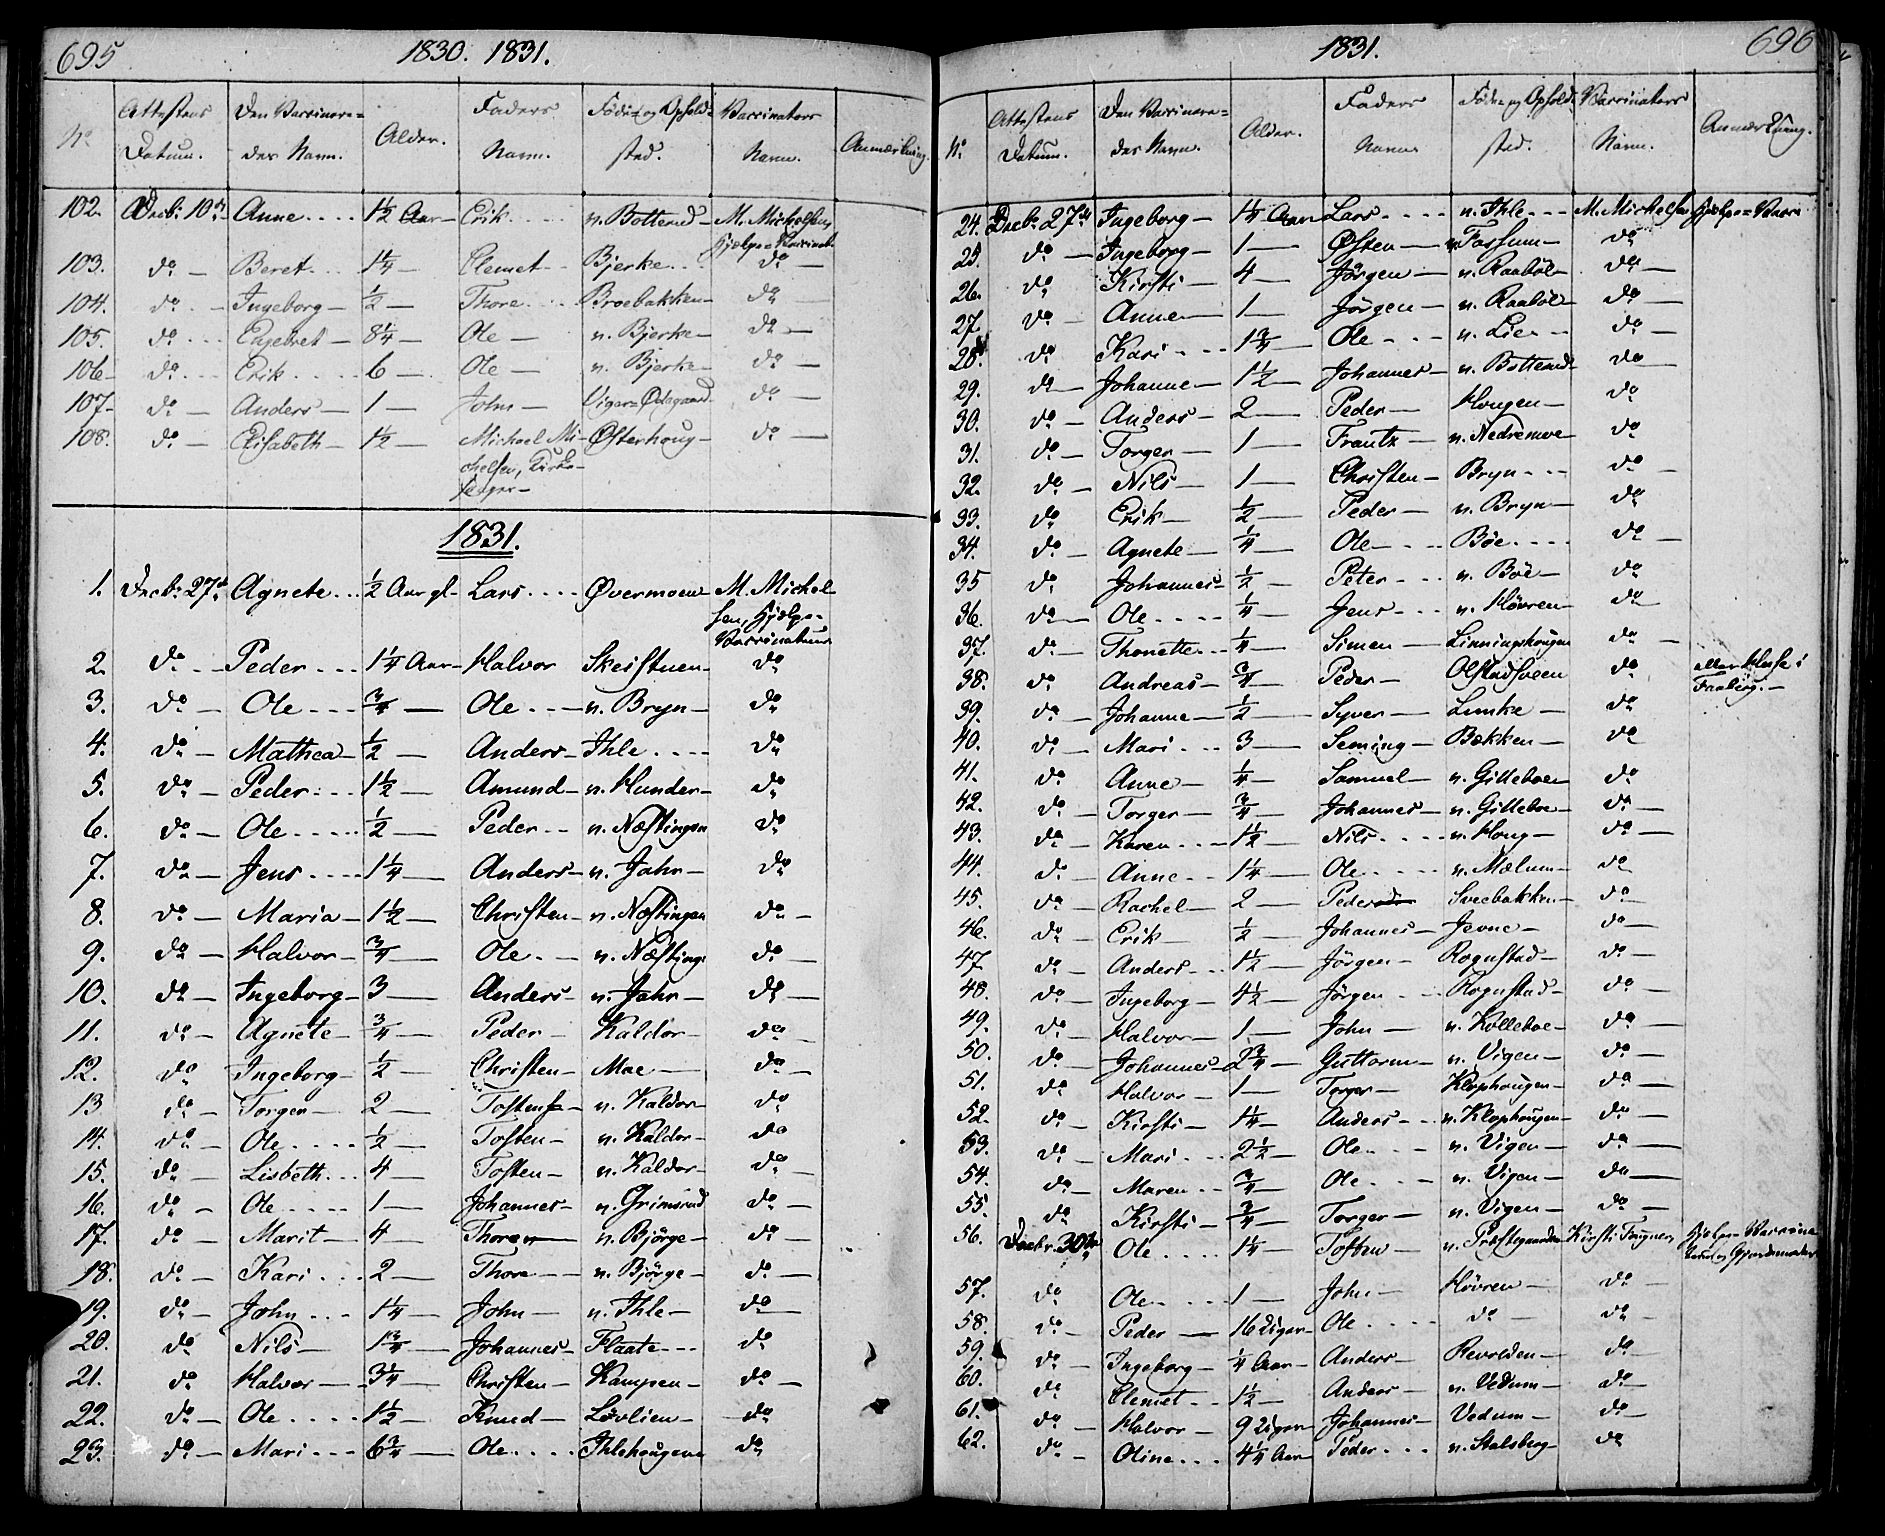 695 1830. 1831.
No Attestens Datum. Den Vaccinere= des Navn. Alder. Faders Navn. Föde- og Ophold= sted. Vaccinators Navn. Anmærkning.
102. Decbr 10de Anne.... 1½ Aar— Erik.... n. Botterud— M. Michelsen,
Hjælpe=Vaccinatr
103. do — Beret... 1¼ — Clemet.. Bjerke... do —
104. do .— Ingeborg— ½ — Thore.... Broebakken— do —
105. do ... Engebret— 8¼ — Ole — n. Bjerke— do —
106— do ... Erik.... 6 — Ole — n. Bjerke— do —
107— do — Anders— 1 — John— Viger=Ødegaard— do —
108. do — Elisabeth— 1½ — Michael Mi- Østerhoug— do —
chelsen, Kirke-
sanger—
1831.
1. Decbr 27de Agnete... ½ Aar gl— Lars.... Øvermoen— M. Michel-
sen, Hjælpe-
Vaccinateur
2. do .— Peder.... 1¼ Aar— Halvor Skeistuen— do
3. do — Ole.... ¾ — Ole.... n. Bryn— do
4. do — Mathea— ½ — Anders— Ihle.... do
5. do — Peder... 1½ — Amund— n. Hunder— do
6. do — Ole..... ½ — Peder.. n. Næstingen do
7. do — Jens.... 1¼ — Anders— n. Jahr— do
8. do — Maria— 1½ — Christen— n. Næstingen do —
9. do — Halvor— ¾ — Ole.... n. Næstinge do —
10. do — Ingeborg— 3 — Anders— n. Jahr— do —
11. do — Agnete— ¾ — Peder— Kaldor— do —
12. do Ingeborg— ½ — Christen— Moe— do —
13 do — Torger— 2 — Tosten— n. Kaldor— do
14. do — Ole.... ½ — Tosten— n. Kaldor— do
15. do — Lisbeth... 4 — Tosten— n. Kaldor— do —
16. do — Ole..... 1 — Johannes— n. Grimsrud do —
17. do — Marit— 4 — Thore— n. Bjørge— do —
18. do — Kari... 2 — Thore— n. Bjørge— do —
19. do — John... 1¼ — John— n. Ihle— do —
20. do Nils— 1¾ — Johannes— Flaate... do
21. do — Halvor— 3¼ — Christen— Kampen— do —
22. do — Ole.... 1½ — Knud— Løvlien— do
23. do — Mari... 6¾ — Ole.... Ihlehougen do
1831. 696
No. Attestens Datum. Den Vaccinere= des Navn. Alder. Faders Navn Föde- og Opholds sted. Vaccinators Navn. Anmærkning.
24. Decbr 27de Ingeborg— 1¼ Aar Lars.... n. Ihle... M. Michelsen Hjælpe=Vacci
25. do — Ingeborg— 1— Østen— n. Fossum— do
26. do Kirsti— 4 — Jörgen— n. Raaböl— do —
27. do — Anne— 1— Jörgen— n. Raaböl— do —
28. do Kari... 1¾ — Ole.... n. Lien— do
29. do — Johanne— 1½ — Johannes— n. Botterud— do —
30. do — Anders— 2 — Peder— Hougen— do
31. do — Torger— 1— Frantz— n. Nedremoe— do
32. do — Nils— 1— Christen— Bryn... do —
33. do Erik— ½ — Peder— n. Bryn— do
34. do — Agnete— ¼ — Ole.... Böe.... do —
35 do Johannes— ½ — Peter... n. Böe— do
36. do — Ole.... ¼ — Jens... n. Hövren— do
37. do — Thonette... ¼ — Simen— Linningshougen do —
38. do Andreas— ¾ — Peder— Olstadsveen do eller Huse i
Faaberg.—
39. do — Johanne— ½ — Syver— Lunke— do —
40. do — Mari... 3 — Seming— Bækken— do
41. do Anne— ¼ — Samuel— n. Gilleboe— do
42. do — Torger— ¾ — Johannes— n. Gilleboe— do —
43. do — Karen... 1½ — Nils.... n. Houg— do —
44. do — Anne... 1¼ — Ole.... n. Mælum— do
45. do — Rachel— 2 — Peder Sveebakken— do —
46. do — Erik— ½ — Johannes— Jevne— do —
47 do — Anders... 1½ — Jörgen— Rognstad— do —
48. do — Ingeborg— 4½ — Jörgen... Rognstad— do —
49. do Halvor— 1— John— n. Kolleboe— do —
50. do — Johannes— 2¾ — Guttorm— n. Vigen— do —
51. do Halvor— 1— Torger— Klophougen— do —
52. do — Kirsti— 1¼ — Anders... n. Klophougen— do —
53. do — Mari... 2½ — Ole.... n. Vigen— do —
54. do — Maren... ¾ — Ole... n. Vigen— do —
55. do Kirsti— ¾ — Torger— n. Vigen— do —
56. Decbr 30te Ole.... 1¼ — Tosten— n. Præstegaarden Kirsti Fougner, Hjælpe=Vaccina
teur og Gjordemoder
57. do Ole.... 1— John— Hövren— do —
58. do — Peder— 16 Uger— Ole.... do — do
59. do — Ingeborg— ¼ Aar— Anders— Revolden— do —
60. do Clemet... 1½ — Anders— n. Vedum— do —
61. do — Halvor— 9 Uger— Johannes— Vedum— do
62. do — Oline... 4¼ Aar— Peder... n. Stalsberg— do